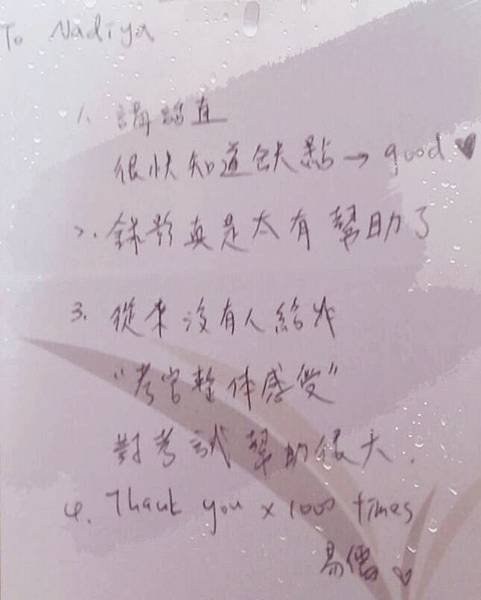 To Nadiya
1. 講話直
很快知道缺點→good ♥
2. 錄影真是太有幫助了
3. 從來沒有人給我
"考官整体感受"
對考試幫助很大.
4. Thank you x 1000 times
易儒 ♡